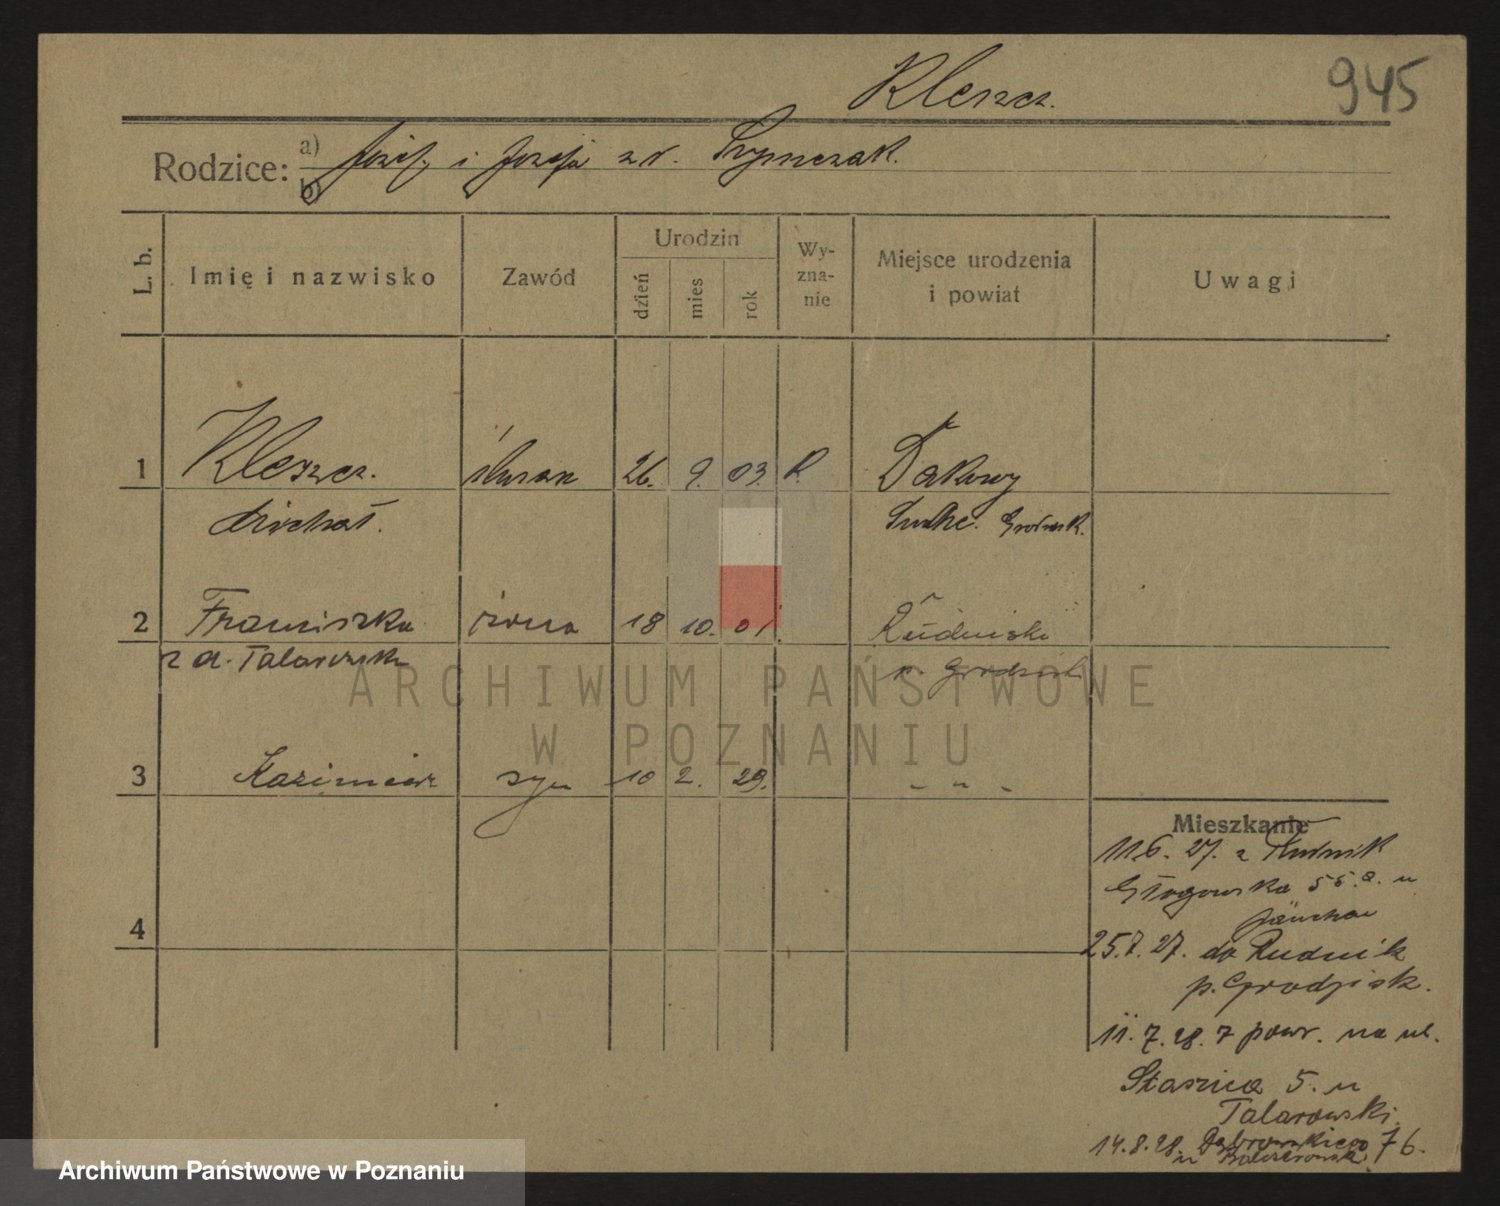 Kleszcz.
945
Rodzice: a) b) Józef i Józefa z d. Szymczak.
L. b. Imię i nazwisko Zawód Urodzin dzień mies rok Wy-zna-nie Miejsce urodzenia i powiat Uwagi
1 Kleszcz. ślusarz 26. 9. 03. K. Dakowy
Michał. Suche. Grodzisk.
2 Franciszka żona 18 10. 01. Rudniki
z d. Talarowska p. Grodzisk
3 Kazimierz syn 10 2. 29. " " "
4
Mieszkanie
11.6. 27. z Rudnik
Głogowska 55.a. u
25.7.27. do Rudnik
p. Grodzisk.
11.7.28. powr. na ul.
Staszica 5. u
Talarowski
14.8.28. Dąbrowskiego 76.
u
ARCHIWUM PAŃSTWOWE
W POZNANIU
Archiwum Państwowe w Poznaniu